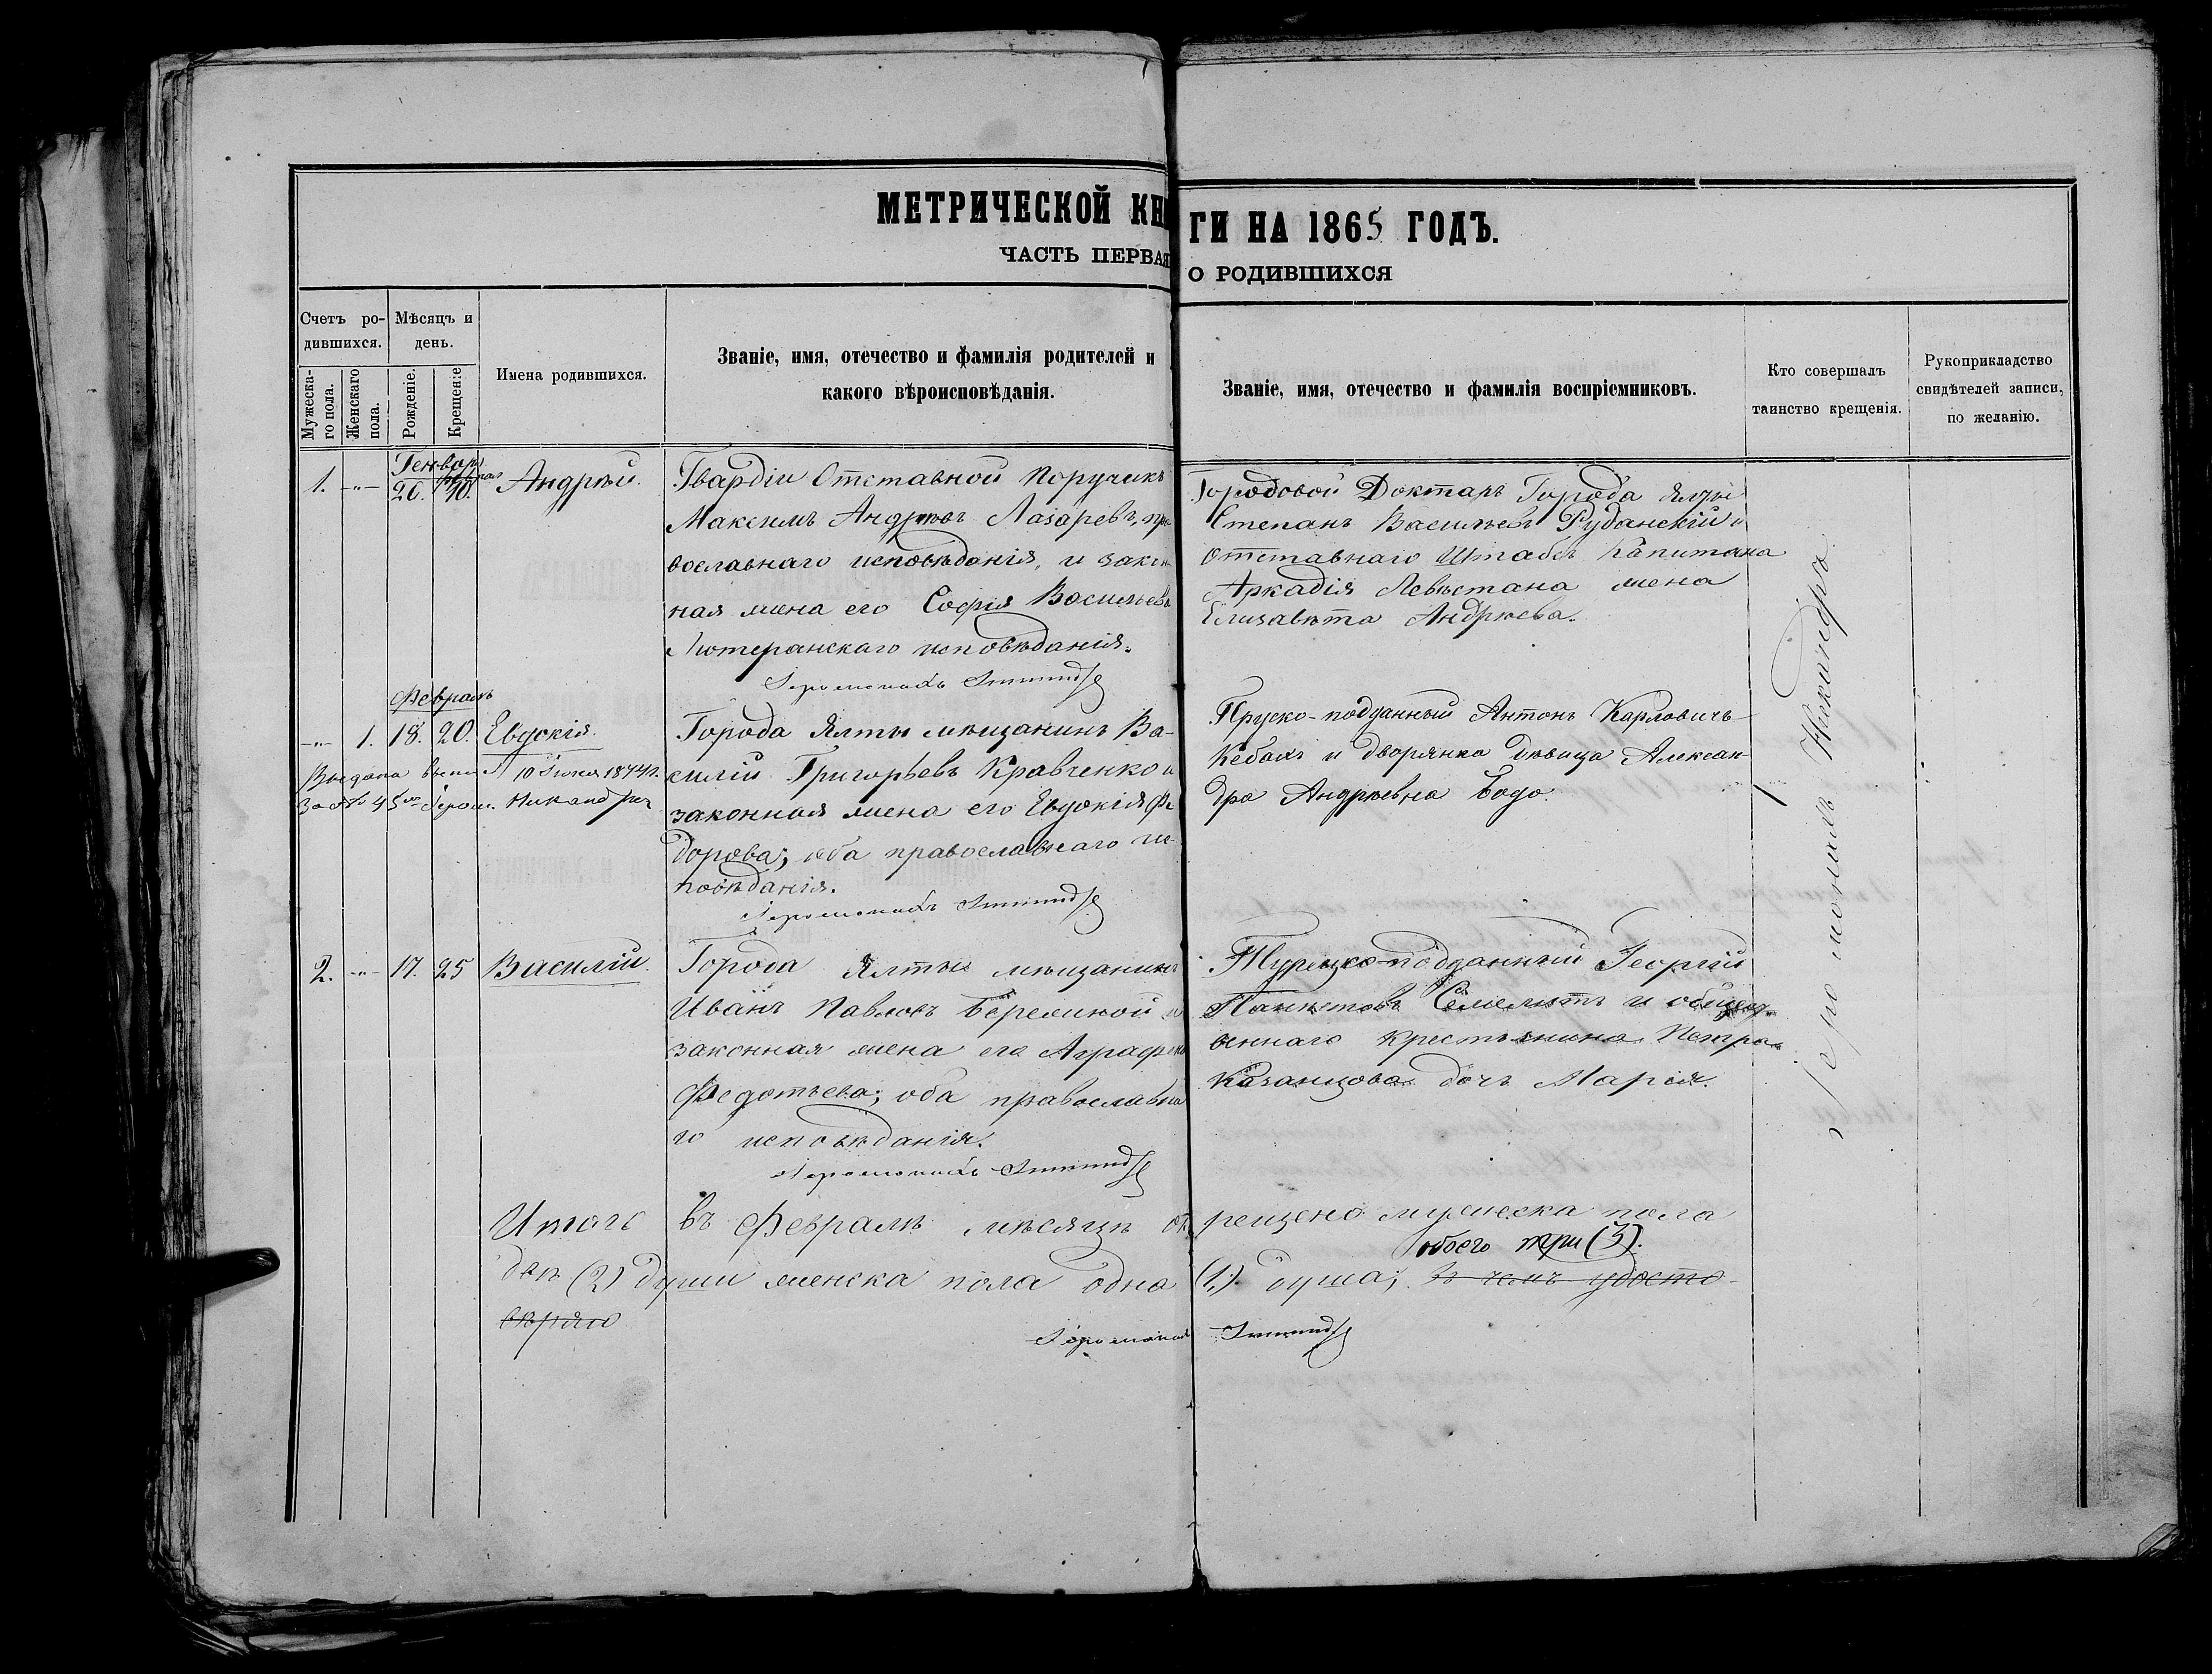 МЕТРИЧЕСКОЙ КНИГИ НА 1865 ГОДЪ.
ЧАСТЬ ПЕРВАЯ О РОДИВШИХСЯ
Счетъ ро-
дившихся.
Мужеска-
го пола.
Женскаго
пола.
Мѣсяцъ и
день.
Рожденіе.
Крещеніе
Имена родившихся.
Званіе, имя, отечество и фамилія родителей и
какого вѣроисповѣданія.
Званіе, имя, отечество и фамилія воспріемниковъ.
Кто совершалъ
таинство крещенія.
Рукоприкладство
свидѣтелей записи,
по желанію.
Генварь
1. -"- 26. 10. Андрѣй.
Гвардіи Отставной Поручикъ
Максимъ Андрѣевъ Лазаревъ, пра
вославнаго исповѣданія, и закон
ная жена его Софія Васильева
Лютеранскаго исповѣданія.
Іеромонахъ
Городовой Докторъ Города Ялты
Степанъ Васильевъ Руданскій и
отставнаго Штабсъ Капитана
Аркадія Левѣстама жена
Елизавѣта Андрѣева.
Іеромонахъ Никандръ
Февраль
-"- 1. 18. 20. Евдокія.
Выдана выпись 10 Іюня 1874 г.
за № 45 Іером. Никандръ
Города Ялты мѣщанинъ Ва-
силій Григорьевъ Кравченко и
законная жена его Евдокія Фе
дорова; оба православнаго ис-
повѣданія.
Іеромонахъ
Пруско-подданный Антонъ Карловичъ
Кебахъ и дворянка дѣвица Алексан-
дра Андрѣевна Бодо.
2. -"- 17. 25 Василій.
Города Ялты мѣщанинъ
Иванъ Павловъ Бережной и
законная жена его Аграфена
Федотьева; оба православна
го исповѣданія.
Іеромонахъ
Турецко-подданный Георгій
и общест-
веннаго крестьянина Петра
Казанцова дочь Марія.
Итого въ Февралѣ мѣсяцѣ окрещено мужеска пола
двѣ (2) души женска пола одна (1.) душа; обоего три (3).
въ чемъ удосто-
вѣряю
Іеромонахъ